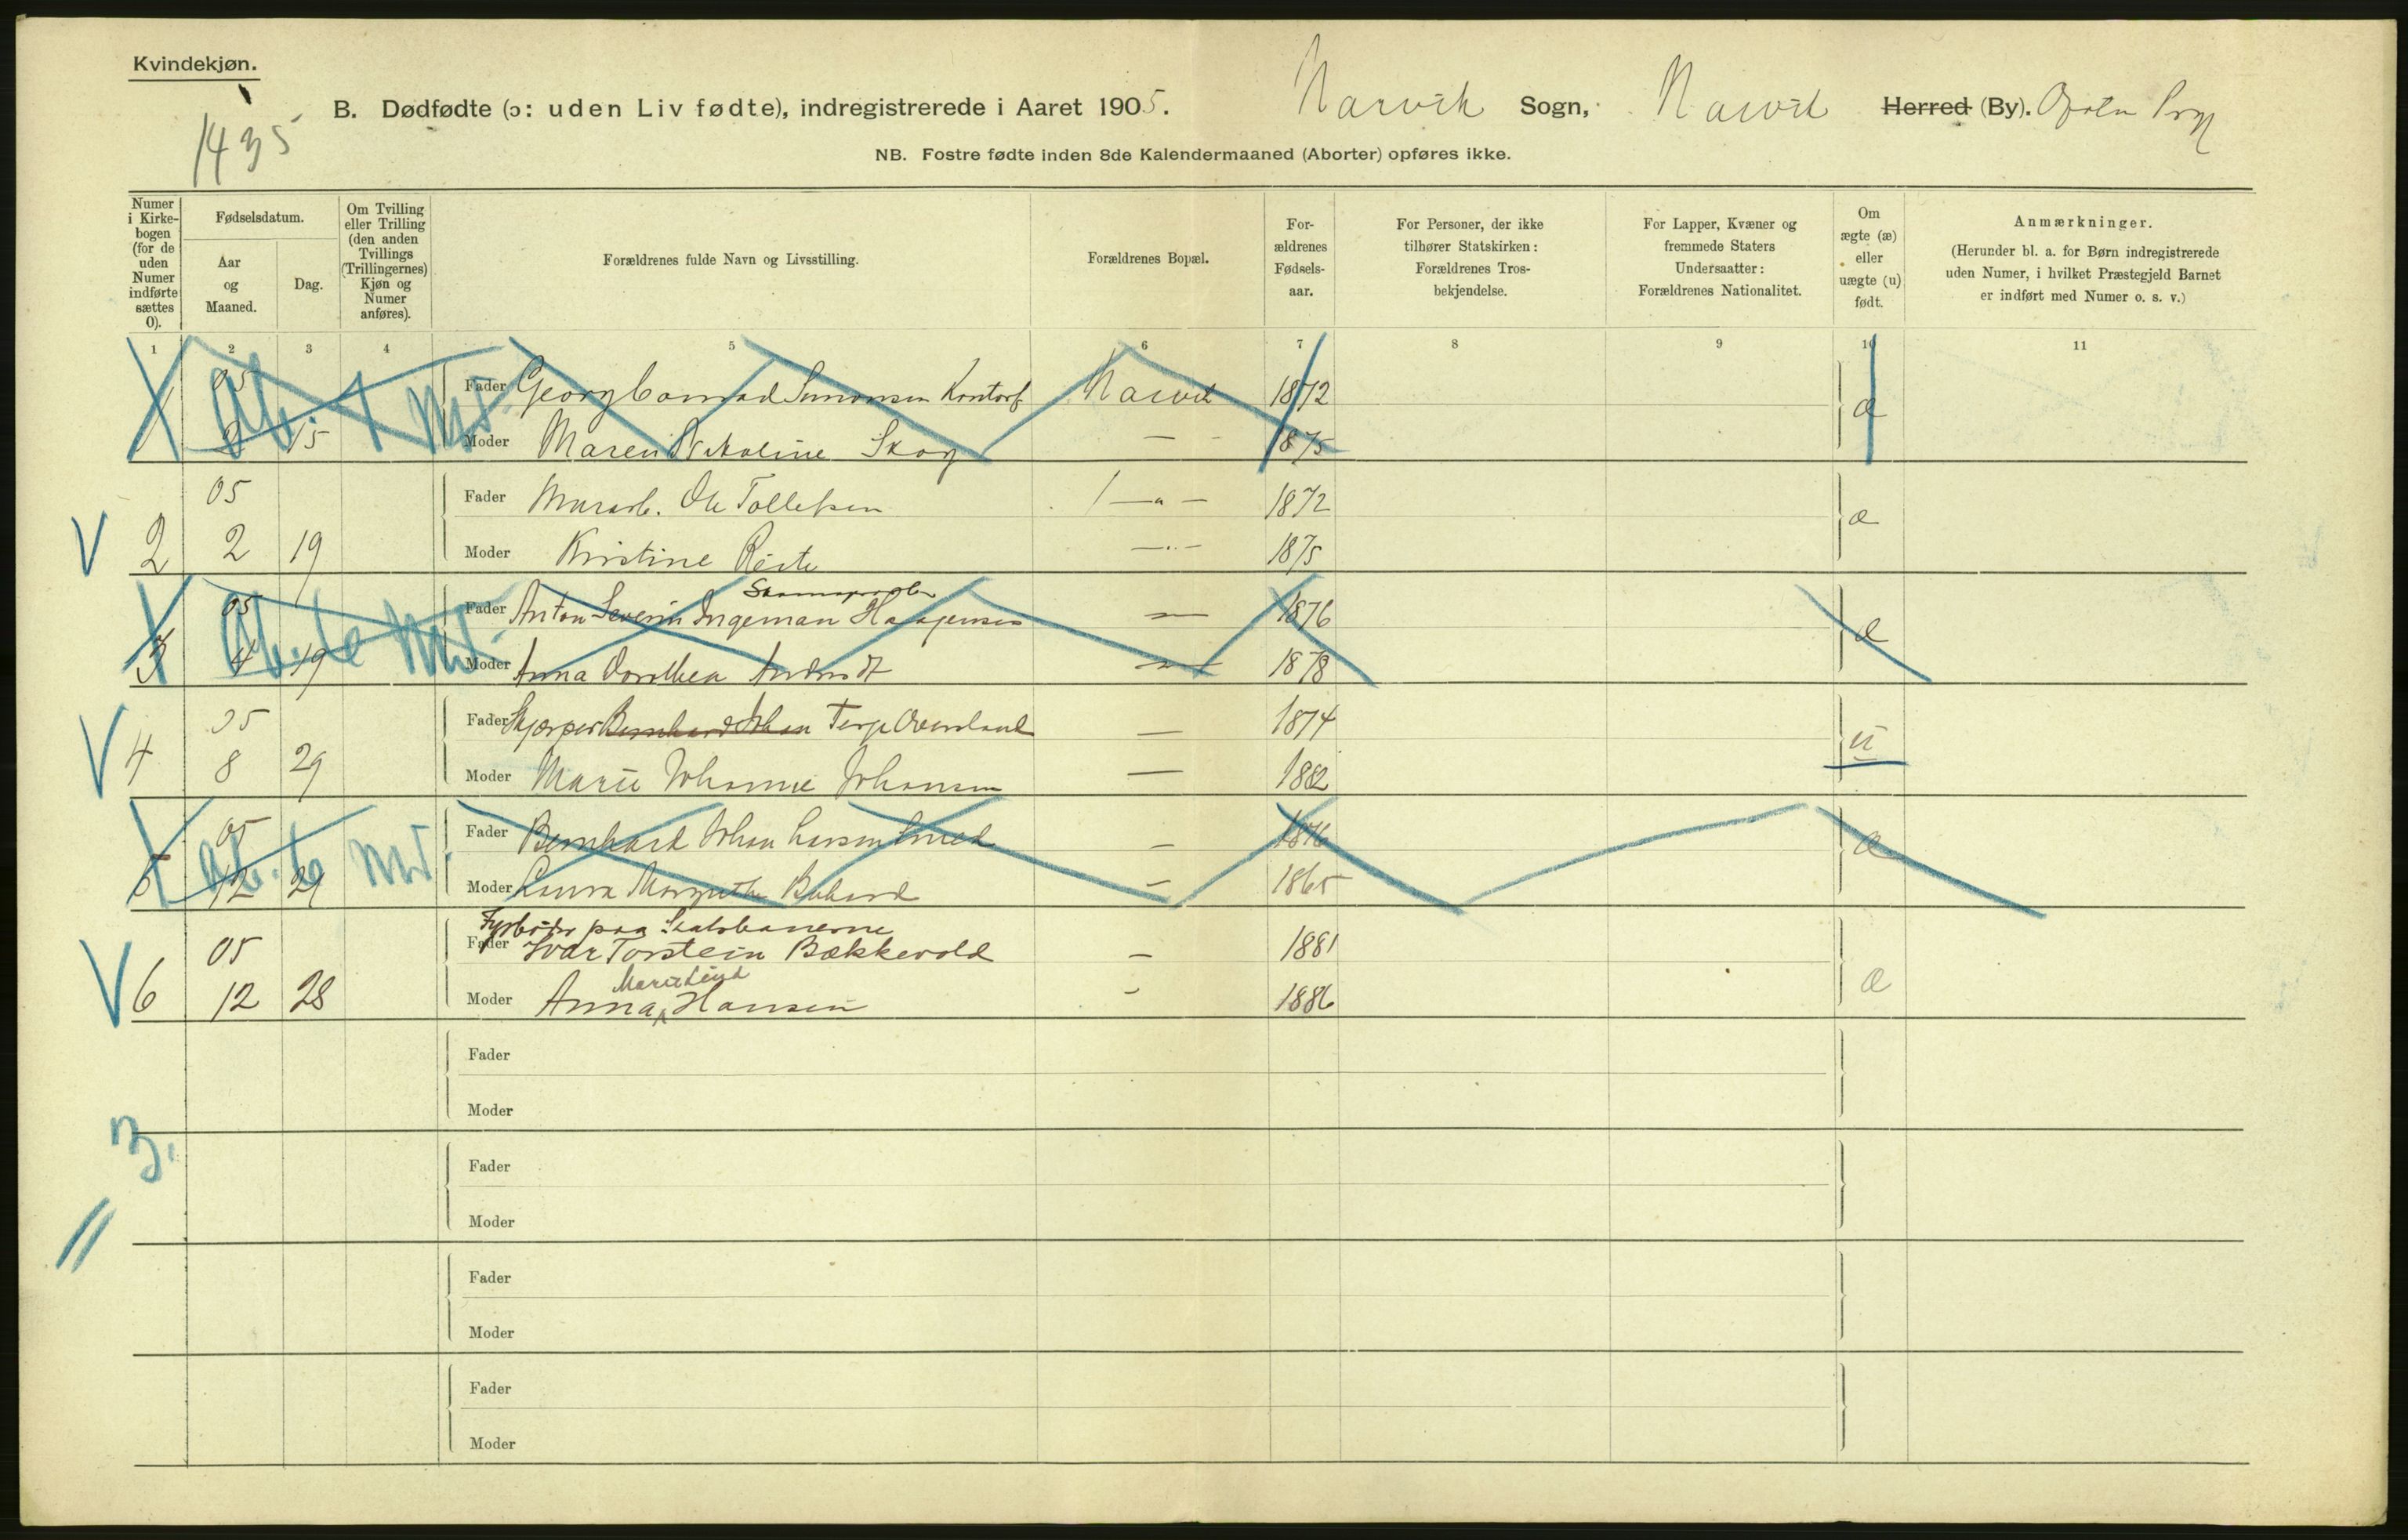 Kvindekjøn.
1435
B. Dødfødte (ɔ: uden Liv fødte), indregistrerede i Aaret 1905. Narvik Sogn, Narvik Herred (By). Ofoten Prgj
NB. Fostre fødte inden 8de Kalendermaaned (Aborter) opføres ikke.
Numer i Kirkebogen (for de uden Numer indførte sættes 0).
Fødselsdatum.
Aar og Maaned.
Dag.
Om Tvilling eller Trilling (den anden Tvillings (Trillingernes) Kjøn og Numer anføres).
Forældrenes fulde Navn og Livsstilling.
Forældrenes Bopæl.
Forældrenes Fødselsaar.
For Personer, der ikke tilhører Statskirken: Forældrenes Trosbekjendelse.
For Lapper, Kvæner og fremmede Staters Undersaatter: Forældrenes Nationalitet.
Om ægte (æ) eller uægte (u) født.
Anmærkninger.
(Herunder bl. a. for Børn indregistrerede uden Numer, i hvilket Præstegjeld Barnet er indført med Numer o. s. v.)
1 2 3 4 5 6 7 8 9 10 11
05 Fader Georg Conrad Simonsen Kontorb Narvik 1872 æ
1 2 15 Moder Maren Nikoline Skog — 1875
05 Fader Murarb. Ole Tollefsen — 1872 æ
V 2 2 19 Moder Kristine Røste — 1875
05 Fader Anton Severin Ingeman Haagensen — 1876 æ
3 4 19 Moder Anna Dorothea — 1878
05 Fader Skjærper Bernhard Johan Terje Overland — 1874 u
V 4 8 29 Moder Marie Johanne Johansen — 1882
05 Fader Bernhard Johan Larsen Smed — 1876 æ
5 12 21 Moder Laura Margrethe — 1865
Fyrbøder paa Statsbanerne
05 Fader Ivar Torstein Bækkevold — 1881 æ
Marie Lind
V 6 12 28 Moder Anna Hansen — 1886
Fader
Moder
3.
Fader
Moder
//
Fader
Moder
Fader
Moder